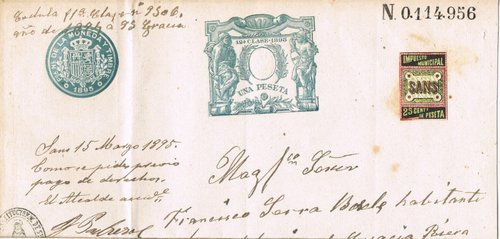 Cedula 1ª Clase nº 9306,
año de 1894 á 95 Gracia
N. 0.114.956
DE LA MONEDA Y TIMBRE
1895
12ª CLASE-1895
UNA PESETA
IMPUESTO MUNICIPAL
SANS
25 CENTS DE PESETA
Sans 15 Marzo 1895.
Como se pide previo
pago de derechos.
El Alcalde
Mag.co Señor
Francisco Serra habitante
Gracia Riera